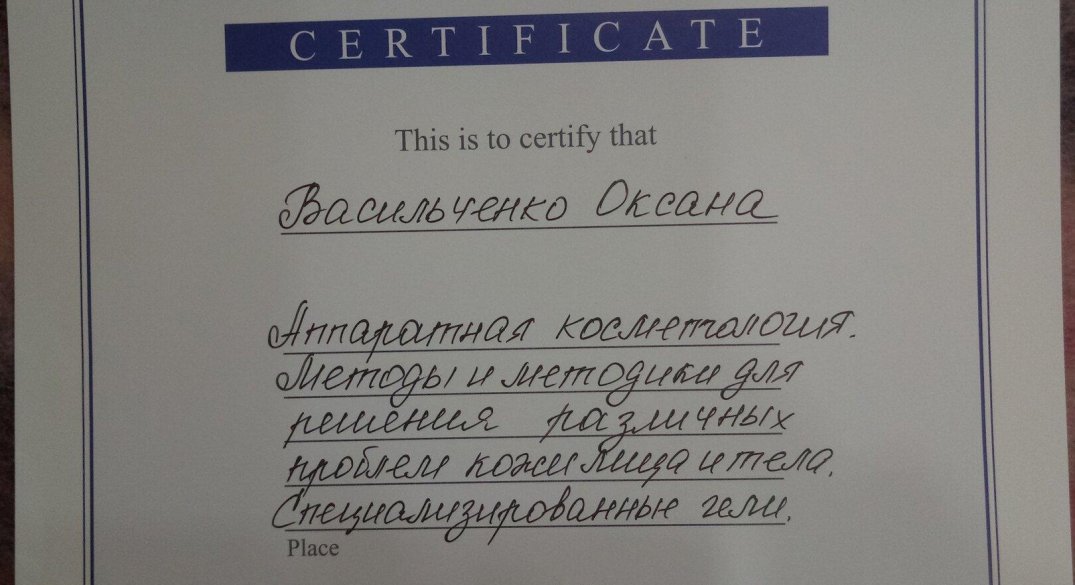 CERTIFICATE
This is to certify that
Васильченко Оксана
Аппаратная косметология.
Методы и методики для
решения различных
проблем кожи лица и тела.
Специализированные гели.
Place